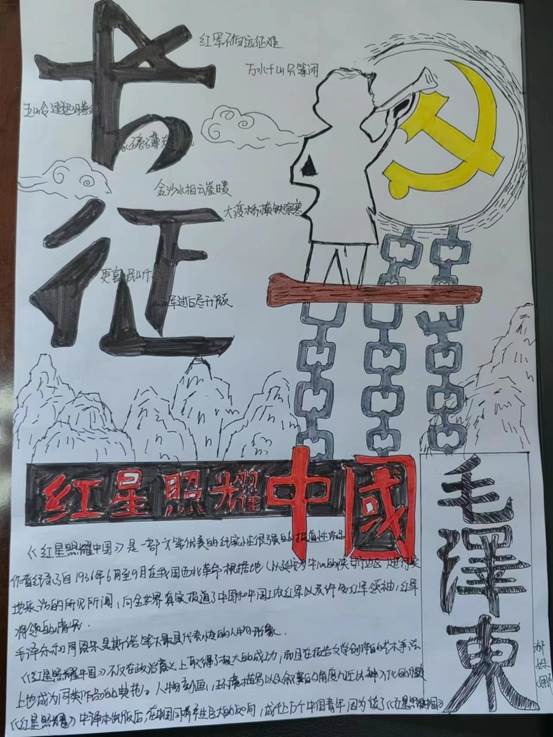 长征
红军不怕远征难
万水千山只等闲
五岭逶迤腾
金沙水拍云崖暖
大渡桥横铁索寒
更喜岷山千
军过后尽开颜
红星照耀中國
毛澤東
《红星照耀中国》是一部文笔优美的纪实性很强的报道性作品
作者行了自1936年6月至9月在我国西北革命根据地(以延安为中心的陕甘宁边区)进行实
地采访的所见所闻,向全世界真实报道了中国和中国工农红军以及许多红军领袖,红军
将领的情况.
毛泽东和周恩来是斯诺笔下最具代表性的人物形象.
《红星照耀中国》不仅在政治意义上取得了极大的成功,而且在报告文学创作的艺术手法
上也成为同类作品的典范。人物刻画,环境描写以及叙事的角度几近以种入化的
《红星照耀》中译本出版后,在我国同样产生巨大的反响,成千上万个中国青年因为读了《红星照耀中国》